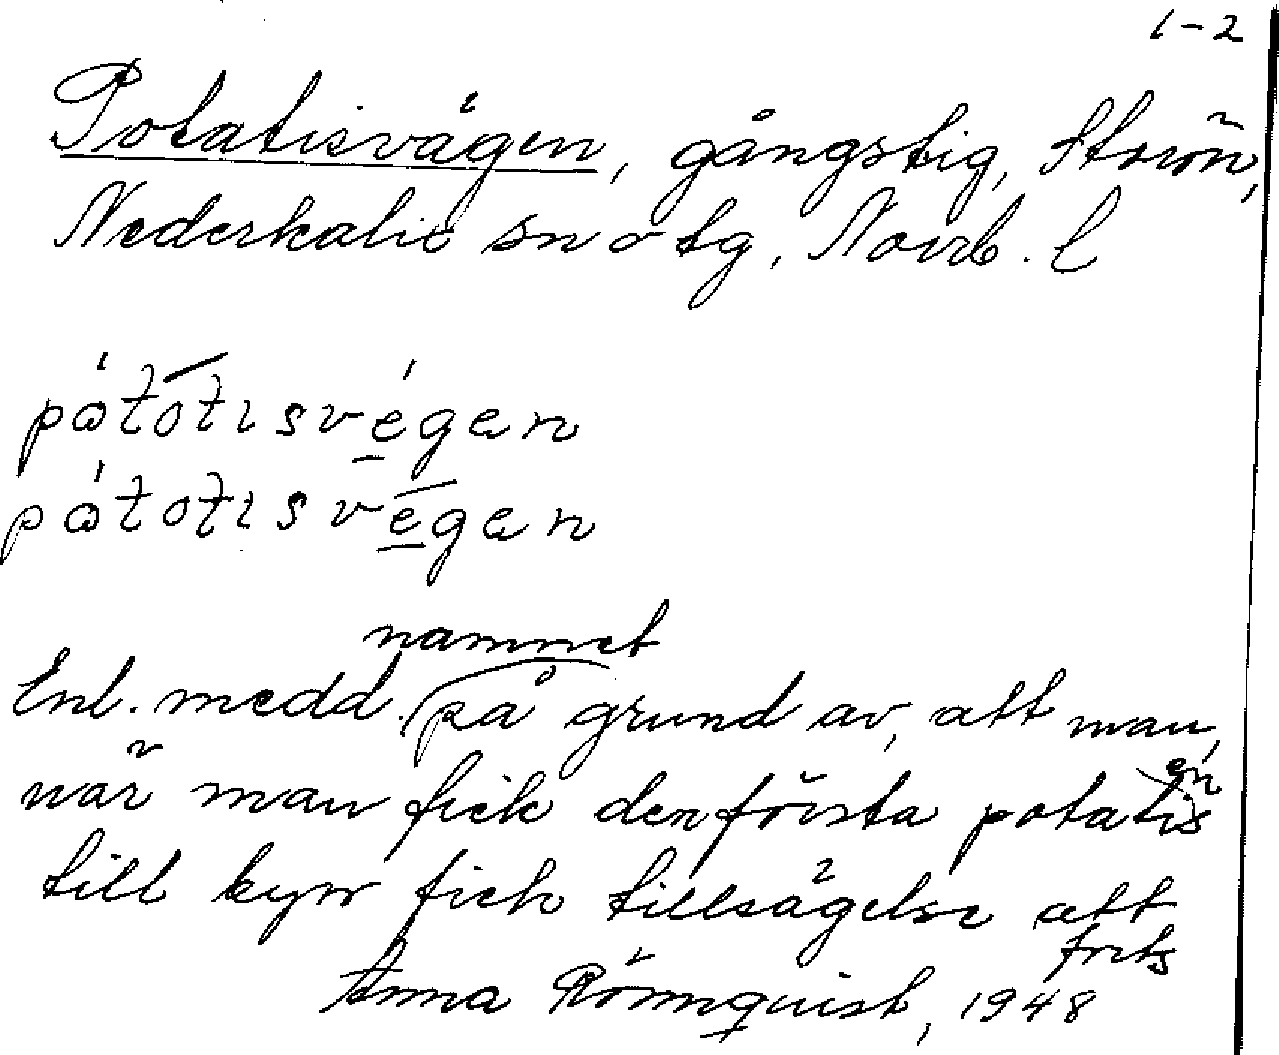 1-2
Potatisvägen, gångstig, Storön,
Nederkalix sn o tg, Norrb. l
pàtótisvégen
pátotisvēgen
namnet
Enl. medd. på grund av, att man,
när man fick den första potatisen
till byn fick tillsägelse att
forts
Anna Rönnquist, 1948